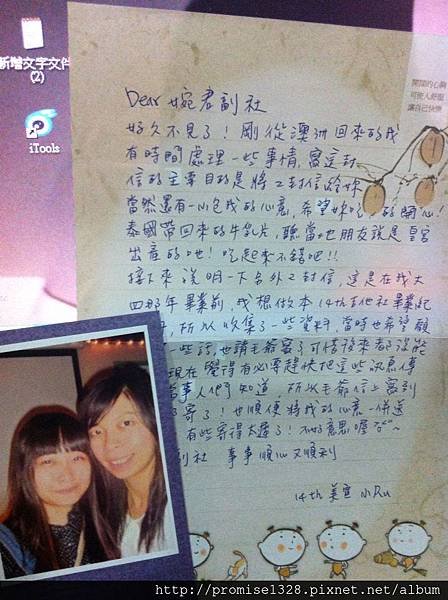 新增文字文件
(2)
iTools
開闊的心胸
可使人舒服
讓自己快樂
Dear 婉君副社
好久不見了！剛從澳洲回來的我
有時間處理一些事情，寫這封
信的主要目的是將2封信給妳
當然還有一小包我的心意，希望妳吃的開心！
泰國帶回來的牛乳片，聽當地朋友說是皇宮
出產的吔！吃起來不錯吧!!
接下來說明一下另外2封信，這是在我大
四那年畢業前，我想做本14th吉他社畢業紀
，所以收集了一些資料，當時也希望顧
一些話，也請毛爺寫了可惜後來都沒能
現在覺得有必要趕快把這些訊息傳
當事人們知道，所以毛爺信上寫到
寄了！也順便將我的心意一併送
有些寄得太遲了！不好意思喔
副社 事事順心又順利
14th 美宣 小Ru
http://promise1328.pixnet.net/album